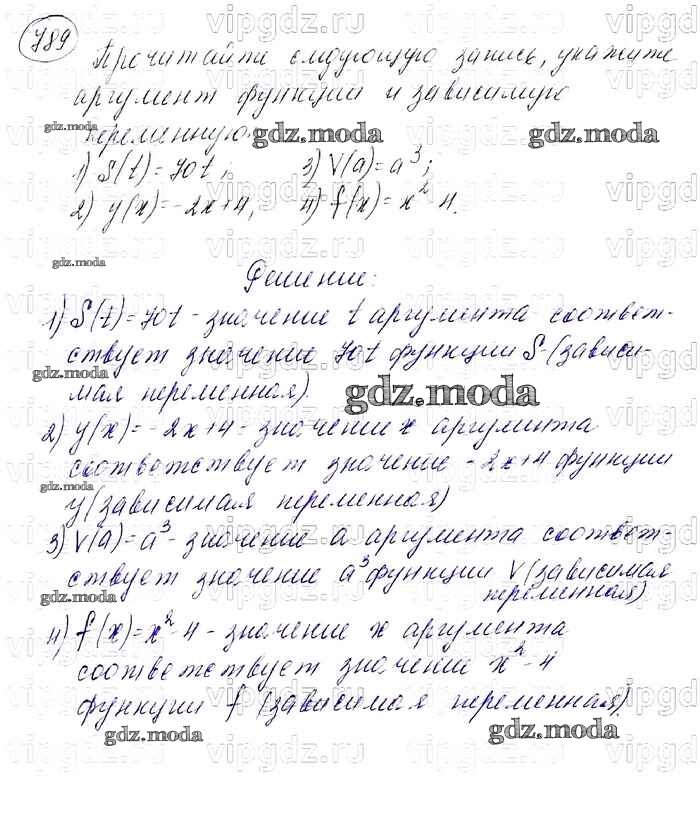 789
Прочитайте следующую запись, укажите
аргумент функции и зависимую
переменную.
1) S(t)=70t; 3) V(a)=a³;
2) y(x)=-2x+4; 4) f(x)=x²-4.
Решение:
1) S(t)=70t - значение t аргумента соответ-
ствует значение 70t функции S-(зависи-
мая переменная).
2) y(x)=-2x+4 - значении x аргумента
соответствует значение -2x+4 функции
y (зависимая переменная)
3) V(a)=a³- значение a аргумента соответ-
ствует значение a³ функции V (зависимая
переменная)
4) f(x)=x²-4 - значение x аргумента
соответствует значение x²-4
функции f (зависимая переменная).
gdz.moda
vipgdz.ru